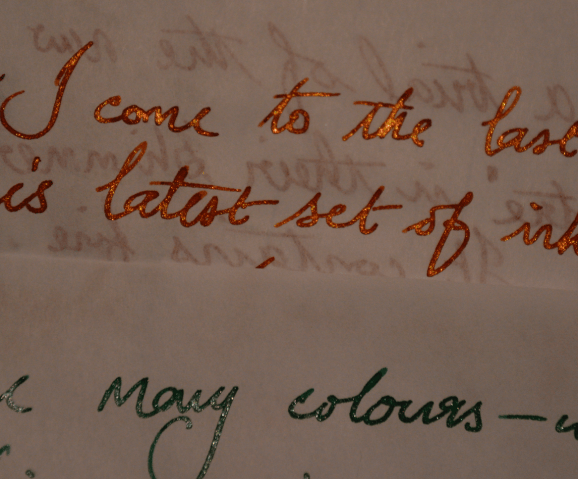 I come to the last
is latest set of ink
many colours —